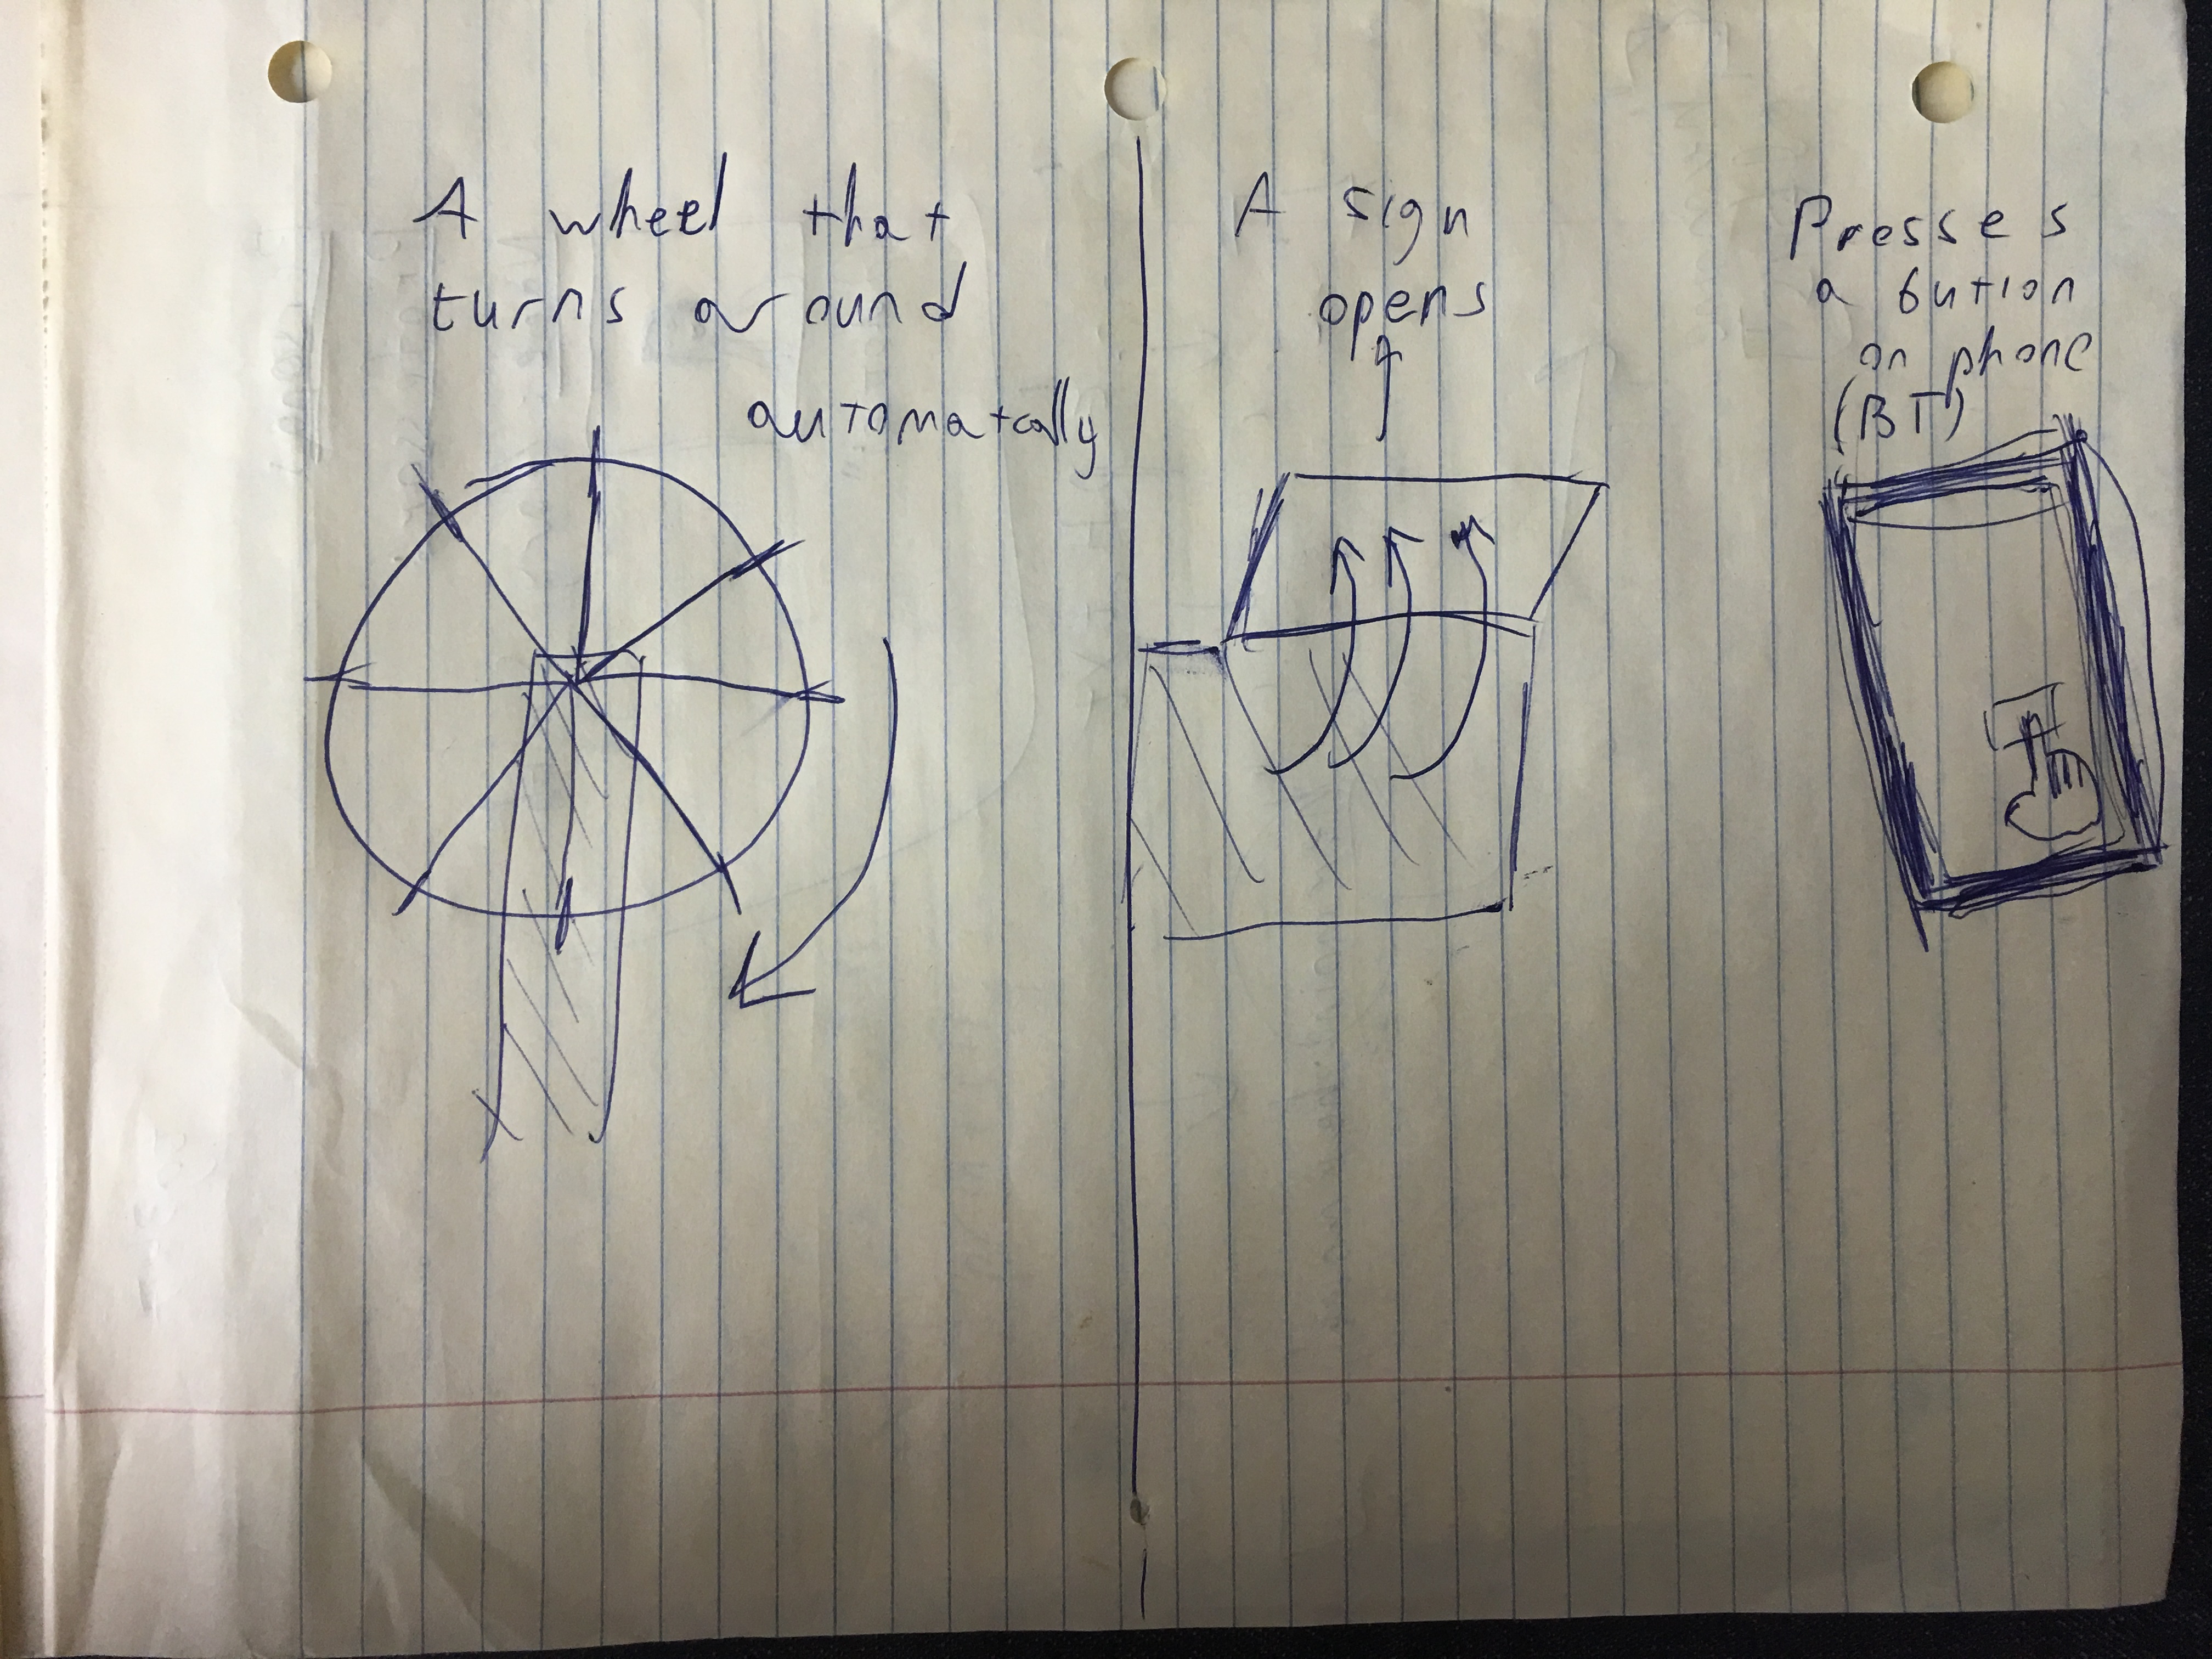 A wheel that
turns around
automatcally
A sign
opens
Presses
a button
on phone
(BT)